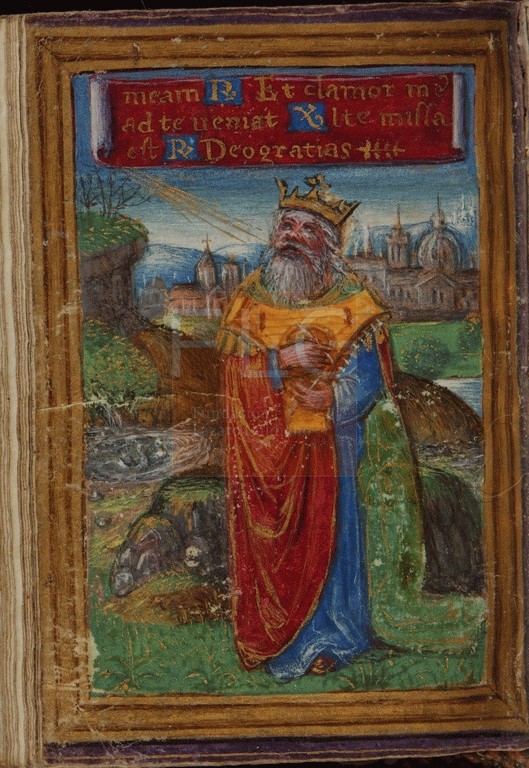 meam R Et clamor me9
ad te veniat X Ite missa
est R Deo gratias